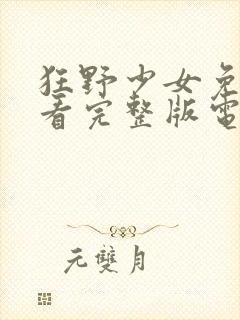 狂野少女免
看完整版電
元雙月